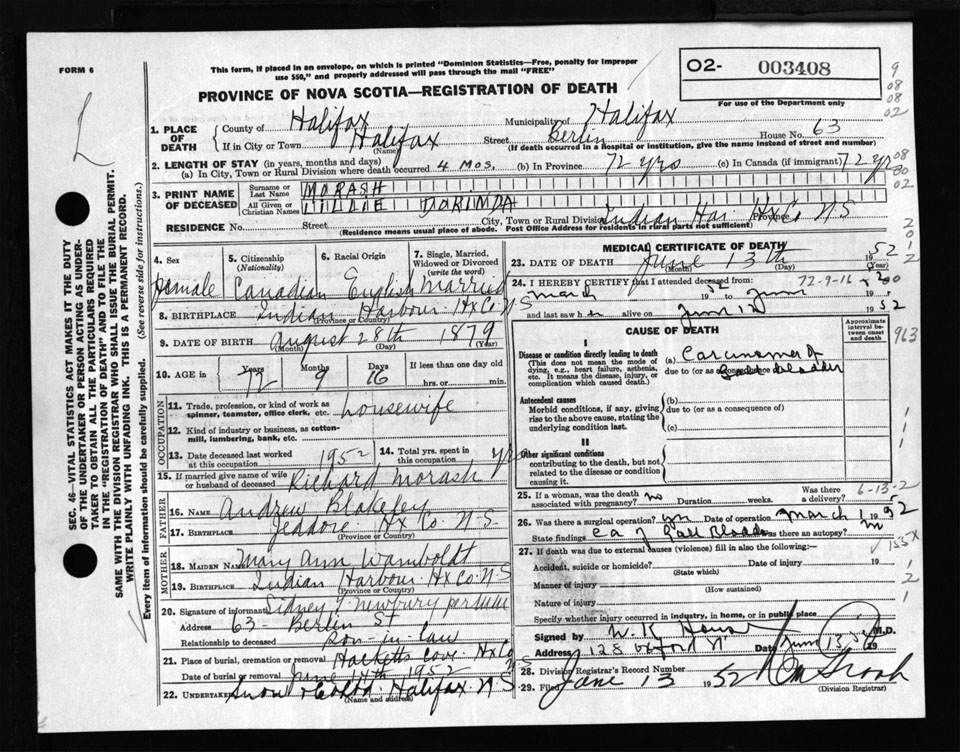 FORM 6
This form, if placed in an envelope, on which is printed "Dominion Statistics—Free, penalty for improper
use $50," and properly addressed will pass through the mail "FREE"
PROVINCE OF NOVA SCOTIA—REGISTRATION OF DEATH
02- 003408
For use of the Department only
9
08
08
02
L
1. PLACE OF DEATH
County of Halifax Municipality of Halifax
If in City or Town Halifax Street Berlin House No. 63
(Name) (If death occurred in a hospital or institution, give the name instead of street and number)
2. LENGTH OF STAY (in years, months and days)
(a) In City, Town or Rural Division where death occurred 4 mos. (b) In Province 72 yrs (c) In Canada (if immigrant) 72 yrs
08
80
02
3. PRINT NAME OF DECEASED
Surname or Last Name MORASH
All Given or Christian Names DORINDA
RESIDENCE No. Street City, Town or Rural Division Indian Har. Hx Co Province N S
(Residence means usual place of abode. Post Office Address for residents in rural parts not sufficient)
4. Sex Female
5. Citizenship (Nationality) Canadian
6. Racial Origin English
7. Single, Married, Widowed or Divorced (write the word) Married
8. BIRTHPLACE Indian Harbour Hx Co N S
(Province or Country)
9. DATE OF BIRTH August 28th 1879
(Month) (Day) (Year)
10. AGE in Years 72 Months 9 Days 16 If less than one day old
hrs. or min.
OCCUPATION
11. Trade, profession, or kind of work as spinner, teamster, office clerk, etc. housewife
12. Kind of industry or business, as cotton-mill, lumbering, bank, etc.
13. Date deceased last worked at this occupation 1952
14. Total yrs. spent in this occupation yrs
15. If married give name of wife or husband of deceased Richard Morash
FATHER
16. NAME Andrew Blakeley
17. BIRTHPLACE Jeddore Hx Co. N.S.
(Province or Country)
MOTHER
18. MAIDEN NAME Mary Ann Wamboldt
19. BIRTHPLACE Indian Harbour Hx Co. N S
(Province or Country)
20. Signature of informant Sidney J. Newbury
Address 63- Berlin St
Relationship to deceased son-in-law
21. Place of burial, cremation or removal Hacketts Cove Hx Co N S
Date of burial or removal June 14th 1952
22. Undertaker Snow & Co Ltd. Halifax N S
(Name and address)
MEDICAL CERTIFICATE OF DEATH
23. DATE OF DEATH June 13th 1952
(Month) (Day) (Year)
24. I HEREBY CERTIFY that I attended deceased from: 72-9-16
March 1952 to June 19
and last saw h alive on June 12 1952
CAUSE OF DEATH
Approximate interval between onset and death
963
I
Disease or condition directly leading to death
(This does not mean the mode of dying, e.g., heart failure, asthenia, etc. It means the disease, injury, or complication which caused death.)
(a) Carcinoma of Gall bladder
due to (or as a consequence of)
Antecedent causes
Morbid conditions, if any, giving rise to the above cause, stating the underlying condition last.
(b)
due to (or as a consequence of)
(c)
II
Other significant conditions
contributing to the death, but not related to the disease or condition causing it.
25. If a woman, was the death associated with pregnancy? no Duration weeks. Was there a delivery? 6-13-2
26. Was there a surgical operation? yes Date of operation March 1 1952
State findings Ca of Gall Bladder Was there an autopsy? no
155X
27. If death was due to external causes (violence) fill in also the following:—
Accident, suicide or homicide? Date of injury 19
(State which)
Manner of injury
(How sustained)
Nature of injury
Specify whether injury occurred in industry, in home, or in public place
Signed by W. K. House M.D.
Address 128 Oxford St Date June 13 52 19
28. Division Registrar's Record Number
29. Filed June 13 1952
(Division Registrar)
SEC. 46—VITAL STATISTICS ACT MAKES IT THE DUTY
OF THE UNDERTAKER OR PERSON ACTING AS UNDER-
TAKER TO OBTAIN ALL THE PARTICULARS REQUIRED
IN THE "REGISTRATION OF DEATH" AND TO FILE THE
SAME WITH THE DIVISION REGISTRAR WHO SHALL ISSUE THE BURIAL PERMIT.
WRITE PLAINLY WITH UNFADING INK. THIS IS A PERMANENT RECORD.
Every item of information should be carefully supplied. (See reverse side for instructions.)